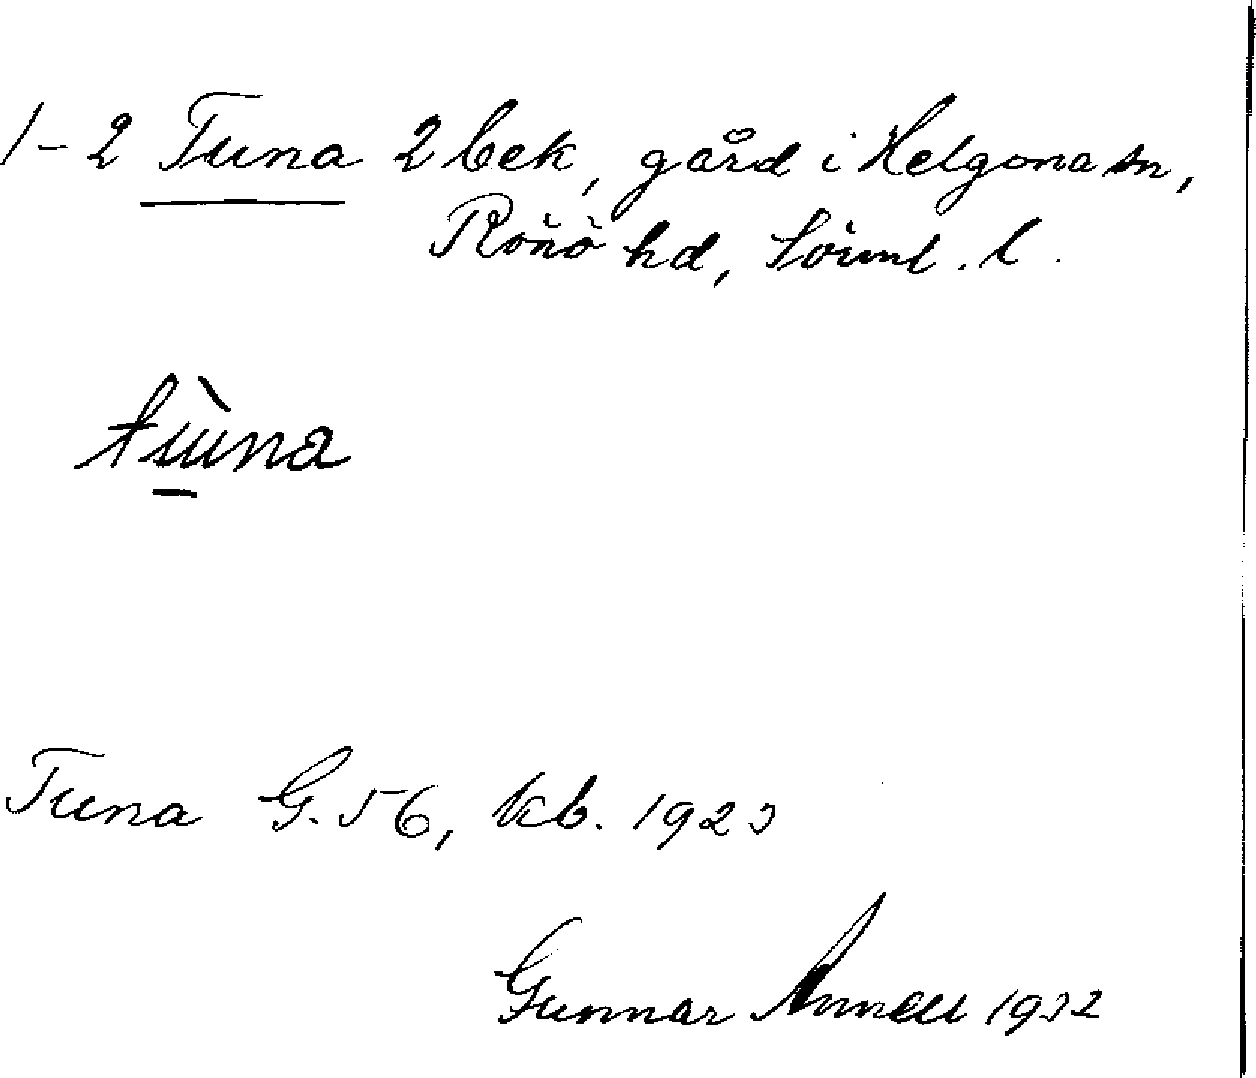 1-2 Tuna 2 bek, gård i Helgona sn,
Rönö hd, Sörml. l.
tùna
Tuna G. 56, kb. 1923
Gunnar Annell 1932